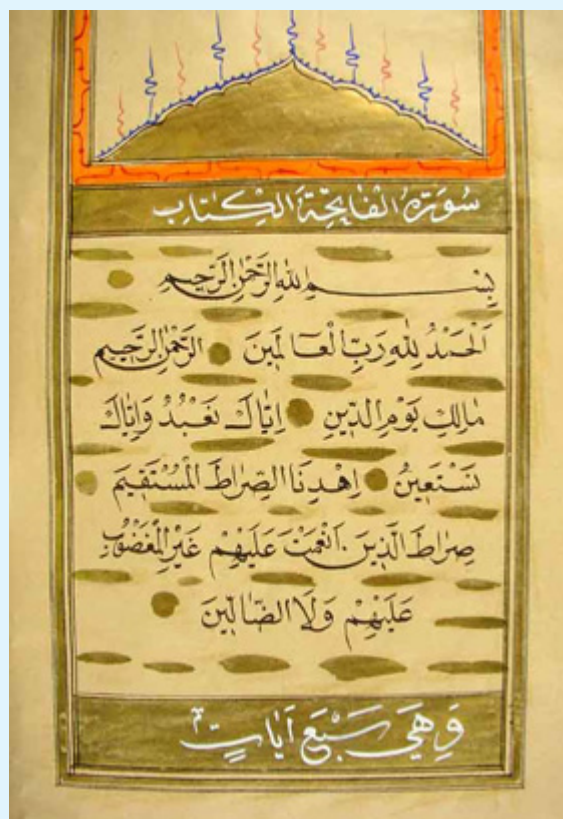 سُورَةُ الْفَاتِحَةِ الْكِتَابِ
بِسْمِ اللهِ الرَّحْمٰنِ الرَّحِيمِ
اَلْحَمْدُ لِلّٰهِ رَبِّ الْعَالَمِينَ الرَّحْمٰنِ الرَّحِيمِ
مَالِكِ يَوْمِ الدِّينِ اِيَّاكَ نَعْبُدُ وَاِيَّاكَ
نَسْتَعِينُ اِهْدِنَا الصِّرَاطَ الْمُسْتَقِيمَ
صِرَاطَ الَّذِينَ اَنْعَمْتَ عَلَيْهِمْ غَيْرِ الْمَغْضُوبِ
عَلَيْهِمْ وَلَا الضَّالِّينَ
وَهِيَ سَبْعَ اٰيَاتٍ